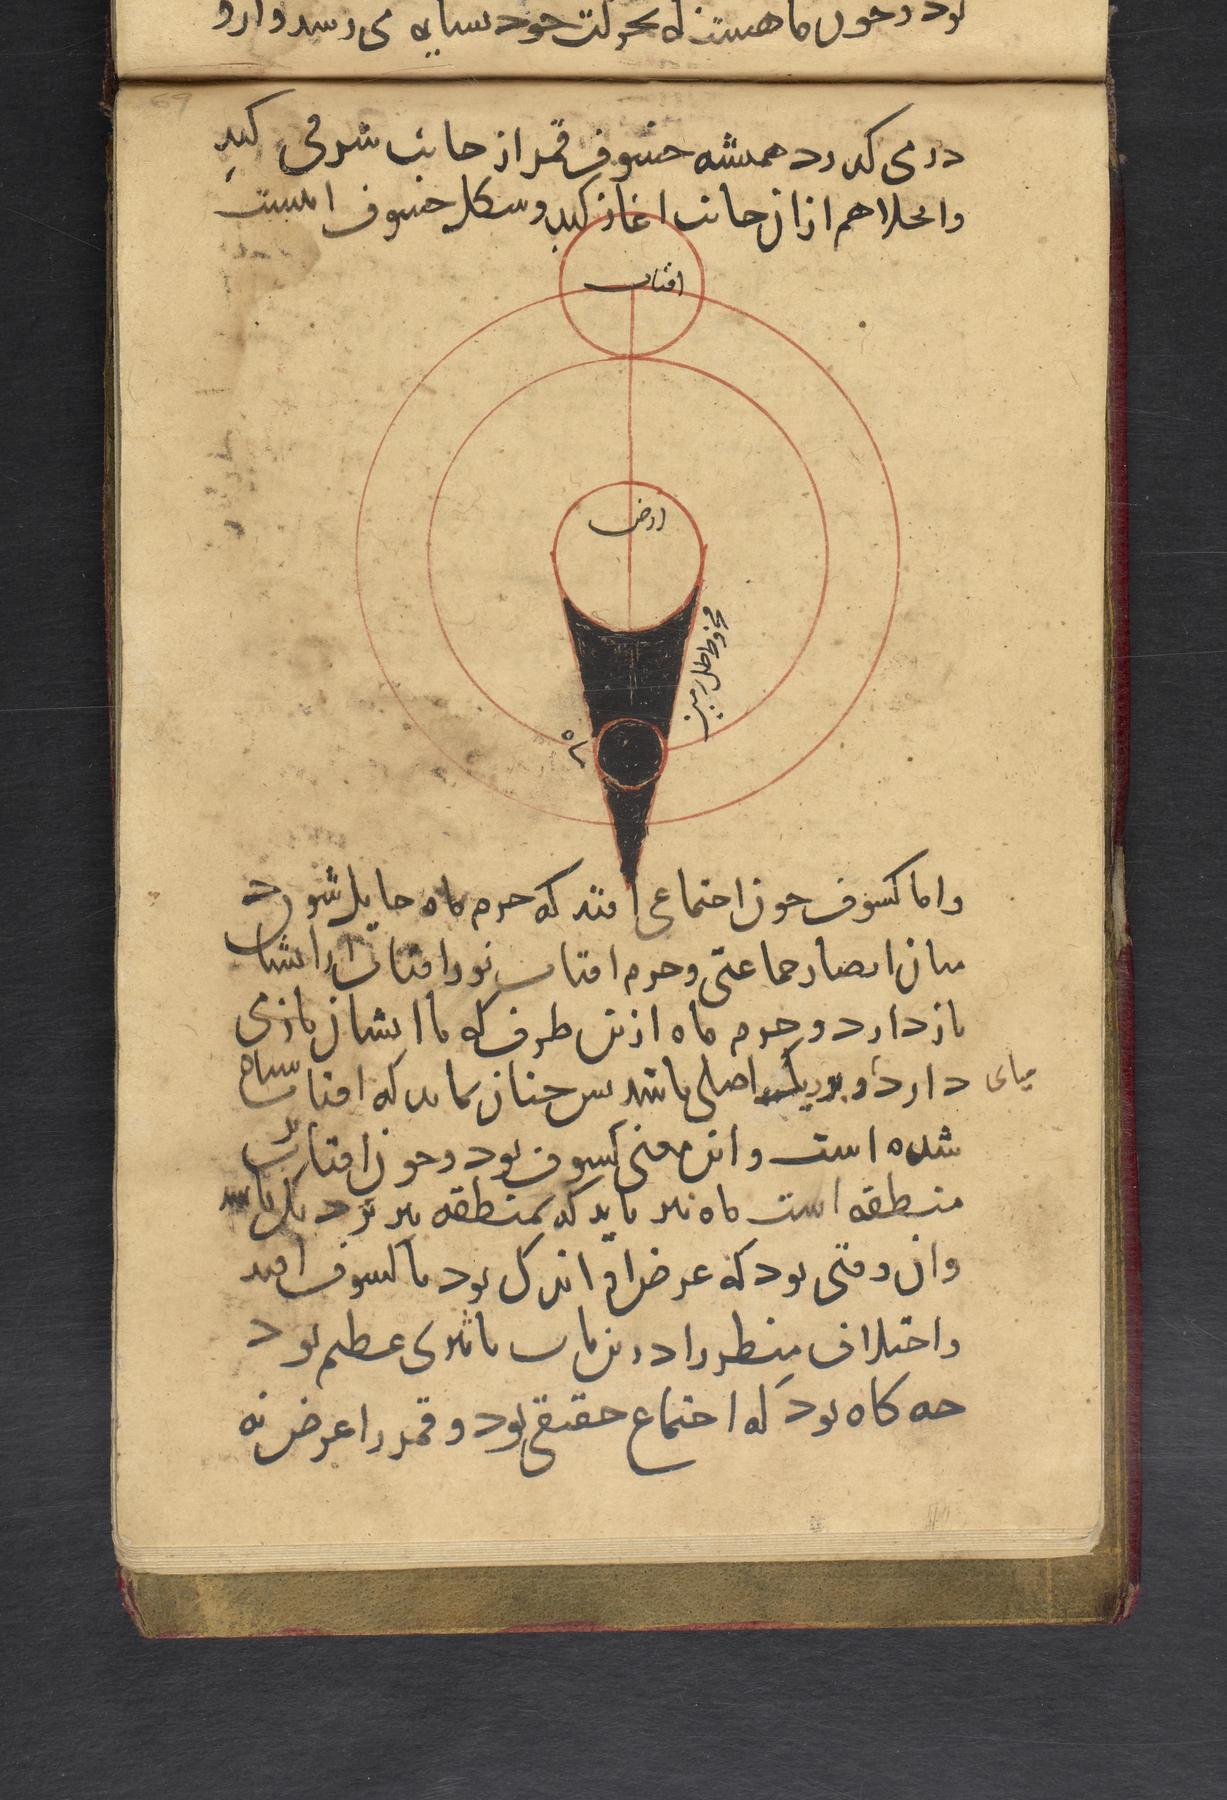 بود و چون ماهست که بحرکت خود بسایه می رسد و از و
69
در می گذرد همیشه خسوف قمر از جانب شرقی کند
و انجلا هم از ان جانب اغاز کند و شکل خسوف اینست
افتاب
ارض
مخروط ظل زمین
ماه
و اما کسوف چون اجتماعی افتد که جرم ماه حایل شود
میان ابصار جماعتی و جرم افتاب نور افتاب از ایشان
باز دارد و جرم ماه ازین طرف که با ایشان دارد
اصلی باشد پس چنان نماید که افتاب سیاه
شده است و این معنی کسوف بود و چون افتاب بر
منطقه است ماه نیز باید که بمنطقه نیز نزدیک باشد
و ان وقتی بود که عرض او اندک بود تا کسوف افتد
و اختلاف منظر را درین باب تاثیری عظیم بود
چه گاه بود که اجتماع حقیقی بود و قمر را عرض نه